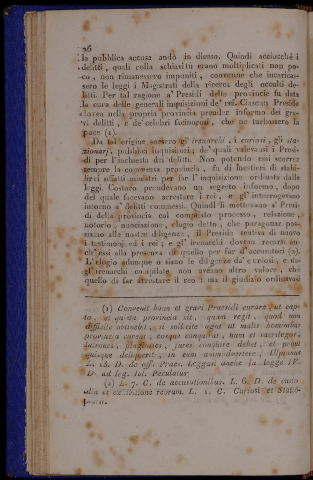 26
la pubblica accusa andò in disuso. Quindi acciocchè i
delitti, quali colla schiavitù erano moltiplicati non po-
co, non rimanessero impuniti, convenne che incaricas-
sero le leggi i Magistrati della ricerca degli occulti de-
litti. Per tal ragione a' Presidi delle provincie fu data
la cura delle generali inquisizioni de' rei. Ciascun Preside
dovea nella propria provincia prender informo dei gra-
vi delitti, e de' celebri facinorosi, che ne turbassero la
pace (1).
Da tal origine sursero gl' irenarchi, i curiosi, gli sta-
zionarj, pubblici inquisitori, de' quali valevansi i Presi-
di per l'inchiesta dei delitti. Non potendo essi scorrer
sempre la commessa provincia, fu di mestieri di stabi-
lirvi sifatti ministri per far l'inquisizione ordinata dalle
leggi. Costoro prendevano un segreto informo, dopo
del quale facevano arrestare i rei, e gl' interrogavano
intorno a' delitti commessi. Quindi li mettevano a' Presi-
di della provincia col composto processo, relazione,
notorio, nunciazione, elogio detto, che paragonar pos-
siamo alla nostra diligenza, il Preside sentiva di nuovo
i testimonj ed i rei; e gl' irenarchi dovean recarsi an-
ch' essi alla presenza di quello per far d'accusatori (2).
L' elogio adunque o siano le diligenze de' curiosi, e de-
gl' irenarchi compilate non aveano altro valore, che
quello di far arrestare il reo: ma il giudizio ordinavasi
(1) Convenit bono et gravi Praesidi curare, ut pap-
ta, et quieta provincia sit, quam regit, quod non
difficile obtinebit, si sollicite agat ut malis hominibus
provincia careat; eosque conquirat, nam et sacrilegos,
latrones, plagiarios, fures conquirere debet, et prout
quisque deliquerit, in eum animadvertere. Ulpianus
L. 13. D. de off. Praes. Leggasi anche la legge IV.
D. ad leg. Iul. Peculatus
(2) L. 7. C. de accusationibus. L. 6. D. de custo-
dia et exhibitione reorum. L. 1. C. Curiosi et Statio-